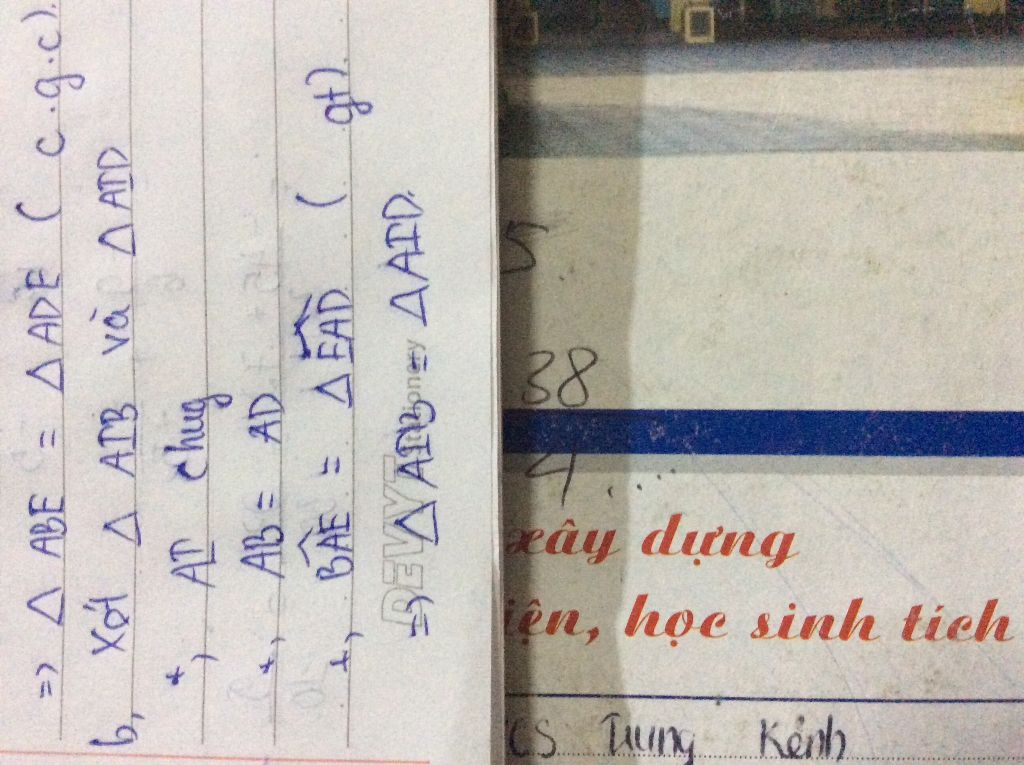 => △ ABE = △ ADE ( c.g.c).
b, Xét △ AIB và △ AID
+, AI chug
+, AB = AD
+, BAE = △ EAD ( gt).
=> △ AIB = △ AID.
REVYT
5
38
4....
xây dựng
iện, học sinh tích
CS Trung Kênh